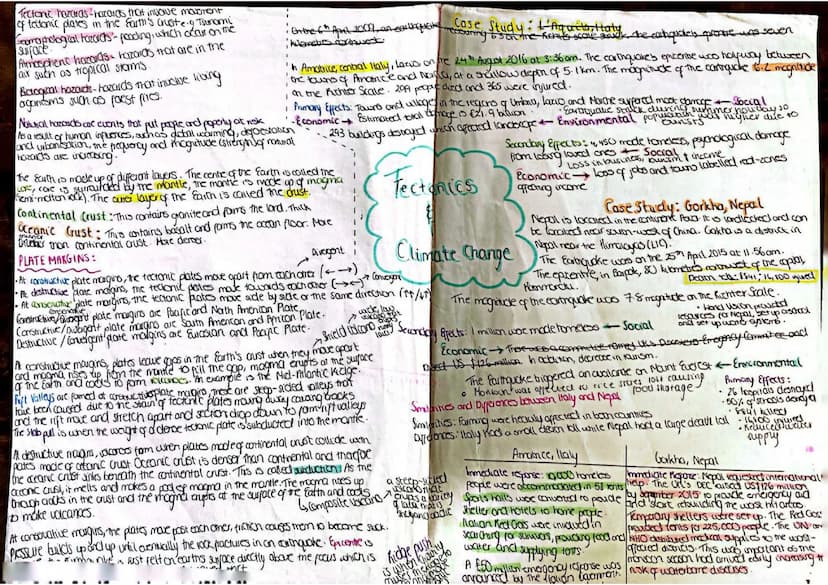 Tectonic hazards - hazards that involve movement
of tectonic plates in the Earth's crust e.g Tsunami
Geomorphological hazards - flooding which occur on the
surface
Atmospheric hazards - hazards that are in the
air such as tropical storms.
Biological hazards - hazards that involve living
organisms such as forest fires.
Natural hazards are events that put people and property at risk
As a result of human influences, such as global warming, deforestation
and urbanisation, the frequency and magnitude (strength) of natural
hazards are increasing.
The Earth is made up of different layers. The centre of the Earth is called the
core, core is surrounded by the mantle, the mantle is made up of magma
(semi-molten rock). The outer layer of the Earth is called the crust.
Continental Crust: This contains granite and forms the land. Thick
Oceanic Crust: This contains basalt and forms the ocean floor. More
than continental crust. More dense.
PLATE MARGINS:
Divergent
• At constructive plate margins, the tectonic plates move apart from each other (← →)
• At destructive plate margins, the tectonic plates made towards each other (→←) → Convergent
• At conservative plate margins, the tectonic plates move side by side or the same direction
Constructive/divergent plate margins are Pacific and North American Plate.
Constructive/divergent plate margins are South American and African Plate.
Destructive / Convergent plate margins are Eurasian and Pacific Plate.
Shield Volcano
At constructive margins, plates leave gaps in the Earth's crust when they move apart
and magma rises up from the mantle to fill the gap, magma erupts at the surface
of the Earth and cools to form volcanoes. An example is the Mid-Atlantic Ridge.
Rift Valleys are formed at constructive plate margins that are steep-sided valleys that
have been caused due to the strain of tectonic plates moving away causing cracks
and the rift move and stretch apart and section drop down to form rift valleys
The slab pull is when the weight of a dense tectonic plate is subducted into the mantle.
At destructive margins, volcanoes form when plates made of continental crust collide with
plates made of oceanic crust. Oceanic crust is denser than continental and therefore
the oceanic crust sinks beneath the continental crust. This is called subduction. As the
oceanic crust, it melts and makes a pool of magma in the mantle. The magma rises up
through cracks in the crust and the magma erupts at the surface of the Earth and cools
to make volcanoes.
Composite volcano
a steep-sided
At conservative margins, the plates move past each other, friction causes them to become stuck.
Pressure builds up and up until eventually the rock fractures in an earthquake. Epicentre is
felt on earth's surface directly above the focus which is
Ridge push
is when
Tectonics
&
Climate Change
Case Study: L'Aquila, Italy
On the 6th April 2009, an earthquake
In Amatrice, central Italy, Lazio on the 24th August 2016 at 3:36am. The earthquake's epicentre was halfway between
the towns of Amatrice and Norcia, at a shallow depth of 5.1km. The magnitude of the earthquake 6.2 magnitude
on the Richter Scale. 299 people died and 365 were injured.
Primary Effects: Towns and villages in the regions of Umbria, Lazio and Marche suffered made damage ← Social
Economic → Estimated total damage to €21.9 billion
293 buildings destroyed which affected landscape ← Environmental
Earthquake struck during summer holiday so
population was higher due to
tourists
Secondary Effects: 4,450 made homeless, psychological damage
from losing loved ones ← Social
Loss in business, tourism & income
Economic → Loss of jobs and towns labelled red-zones
affecting income
Case Study: Gorkha, Nepal
Nepal is located in the continent Asia. It is landlocked and can
be located near south-west of China. Gorkha is a district in
Nepal near the Himalayas (LIC).
The Earthquake was on the 25th April 2015 at 11.56am.
The epicentre, in Barpak, 80 kilometres northwest of the capital,
Kathmandu.
The magnitude of the earthquake was 7.8 magnitude on the Richter Scale.
Secondary Effects: 1 million were made homeless ← Social
Economic →
In addition, decrease in tourism.
The Earthquake triggered an avalanche on Mount Everest ← Environmental
food shortage
Primary Effects:
• 26 hospitals destroyed
• 50% of schools destroyed
Similarities and Differences between Italy and Nepal
Similarities: Farming were heavily affected in both countries
Differences: Italy had a small death toll while Nepal had a large death toll
Amatrice, Italy
Immediate response: 10,000 homeless
people were accommodated in 51 tents
Sports halls were converted to provide
shelter and hotels to home people.
Italian Red Cross were involved in
searching for survivors, providing food and
water and supplying tents.
A €50 million emergency response was
announced by the Italian Government.
Gorkha, Nepal
Immediate Response: Nepal requested international
help. The UK's DEC raised US$126 million
by September 2015 to provide emergency aid
and start rebuilding the worst hit areas
Temporary shelters were set up. The Red Cross
provided tents for 225,000 people. The UN and
WHO distributed medical supplies to the worst-
affected districts. This was important as the
monsoon season had arrived early increasing the
risk of waterborne diseases